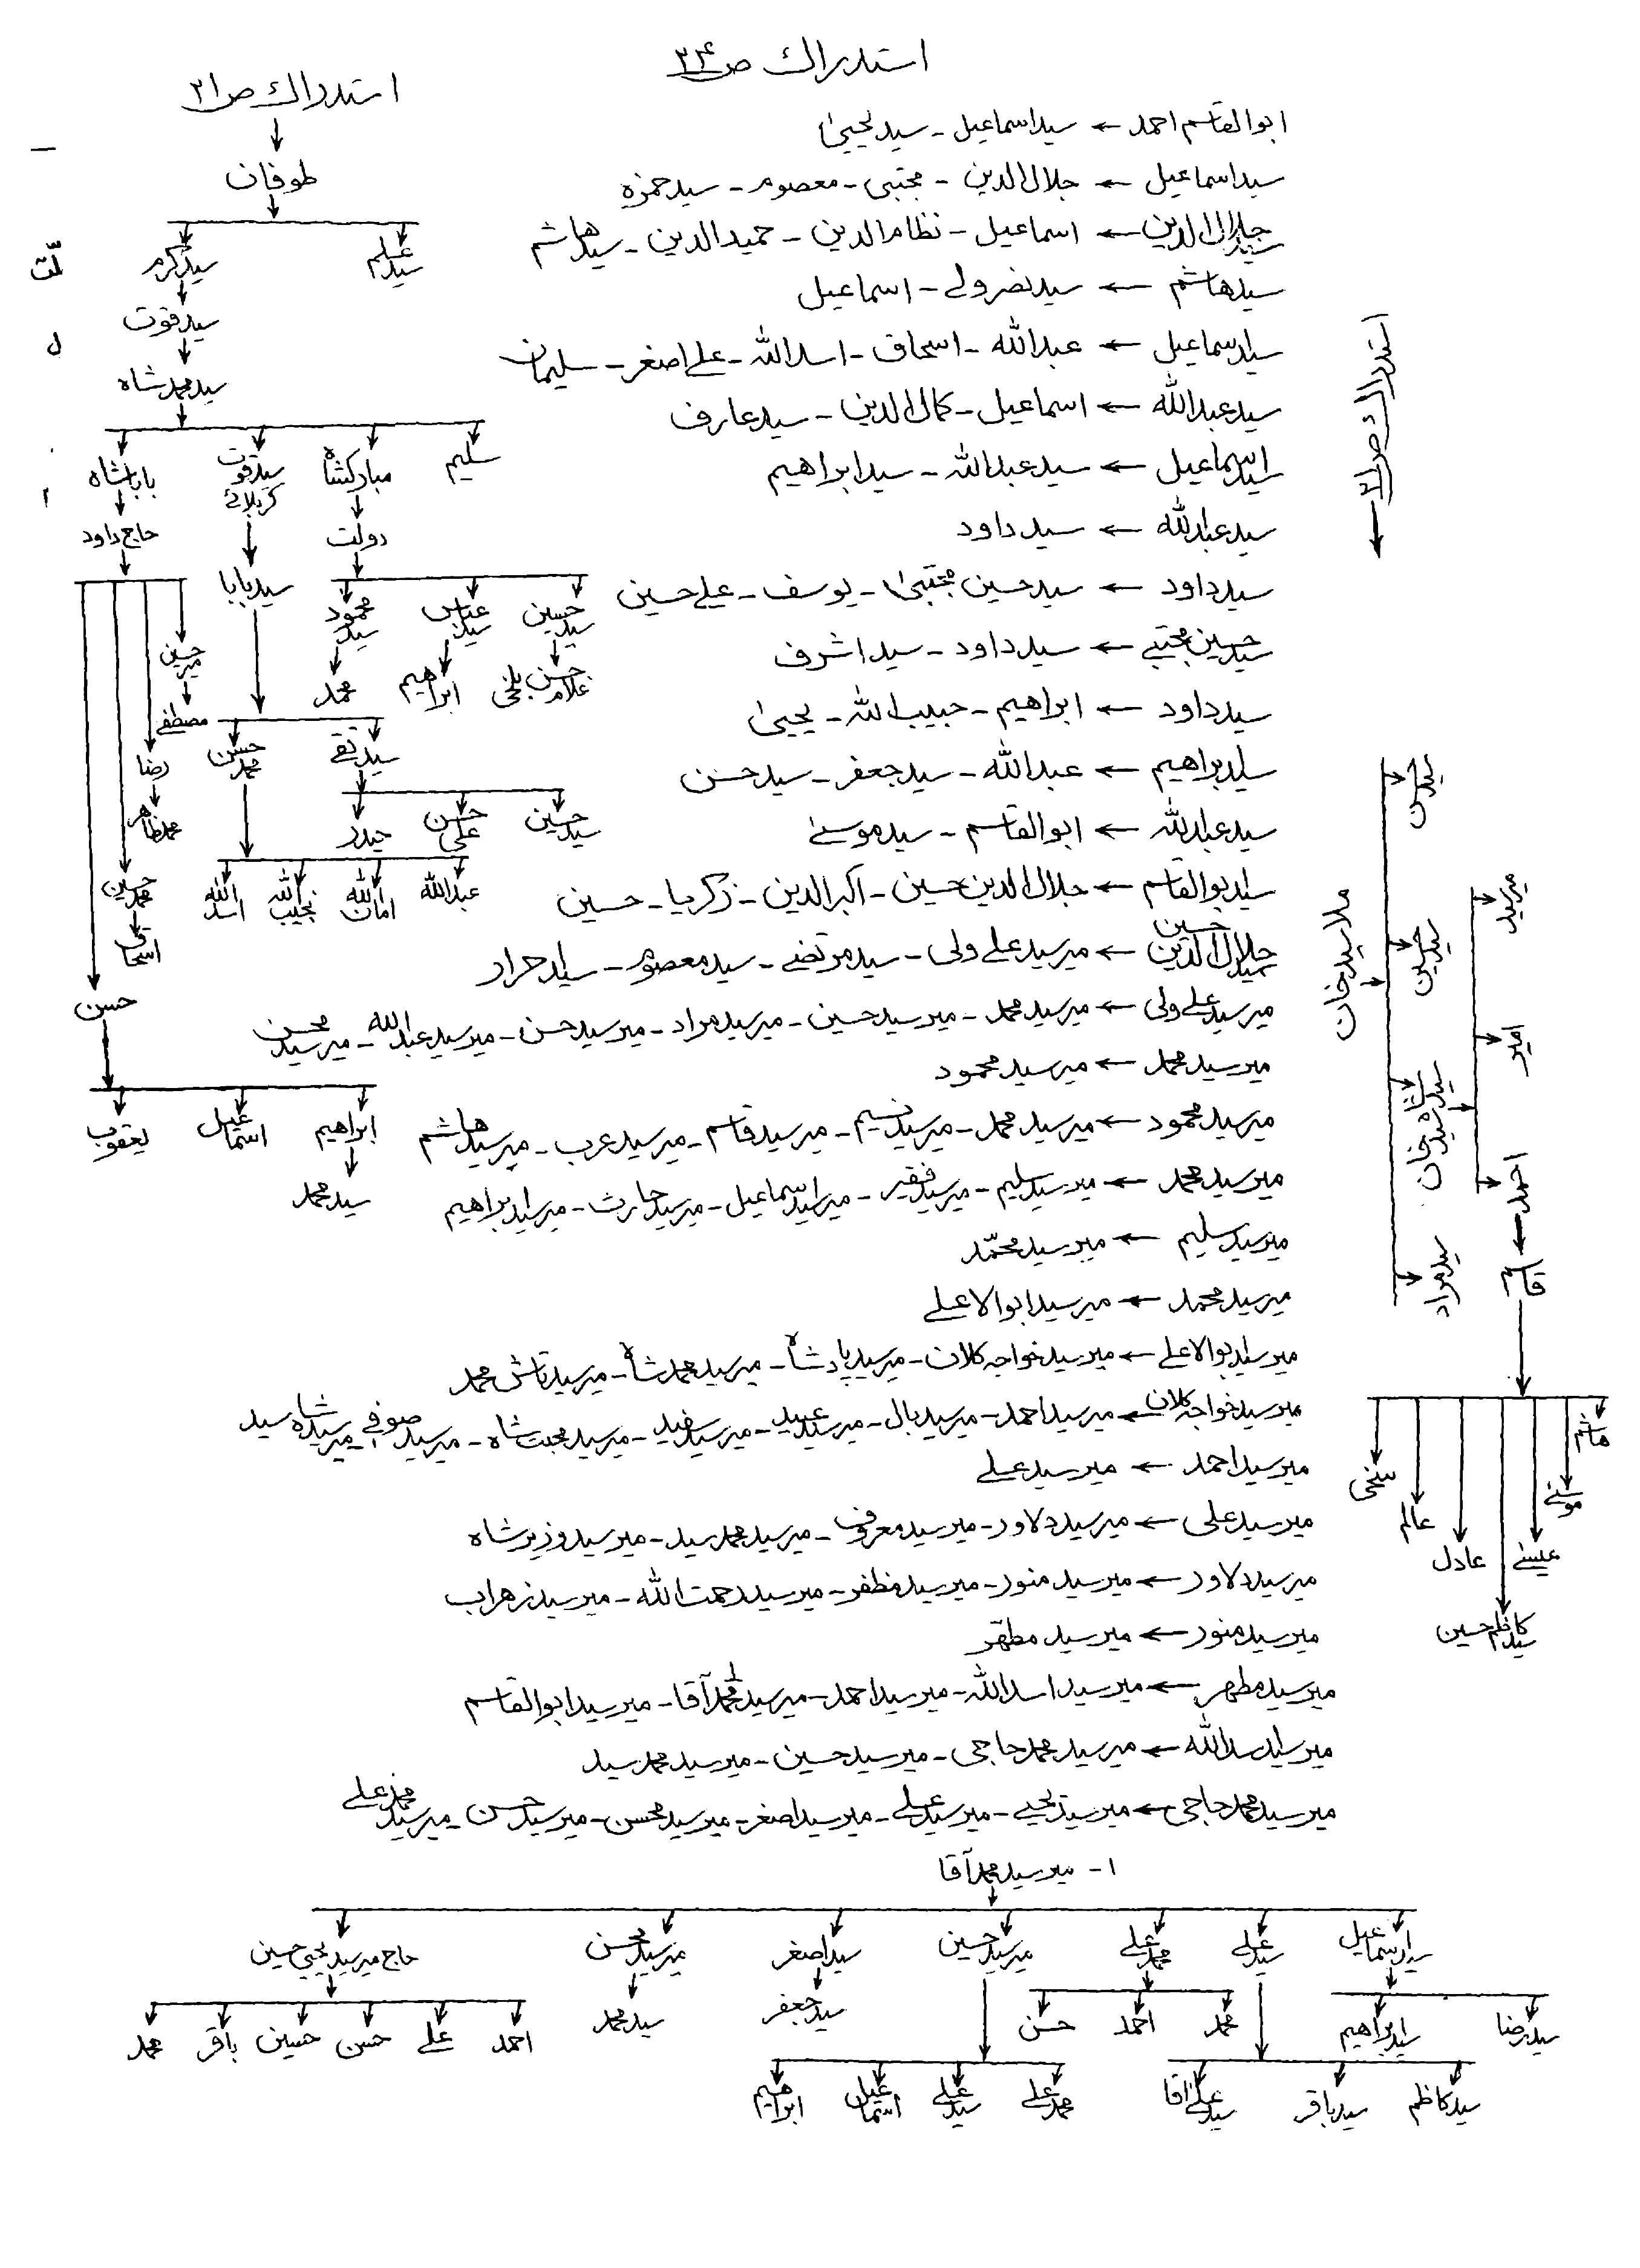 استدراك ص ۳۴
ابوالقاسم احمد ← سید اسماعیل - سید یحییٰ
سید اسماعیل ← جلال الدین - مجتبی - معصوم - سید حمزه
سید جلال الدین ← اسماعیل - نظام الدین - حمید الدین - سید هاشم
سید هاشم ← سید نصر ولے - اسماعیل
سید اسماعیل ← عبدالله - اسحاق - اسدالله - علے اصغر - سلیمان
سید عبدالله ← اسماعیل - کمال الدین - سید عارف
سید اسماعیل ← سید عبدالله - سید ابراهیم
سید عبدالله ← سید داود
سید داود ← سید حسین مجتبیٰ - یوسف - علے حسین
سید حسین مجتبے ← سید داود - سید اشرف
سید داود ← ابراهیم - حبیب الله - یحییٰ
سید ابراهیم ← عبدالله - سید جعفر - سید حسن
سید عبدالله ← ابوالقاسم - سید موسےٰ
سید ابوالقاسم ← جلال الدین حسین - اکبر الدین - زکریا - حسین
سید جلال الدین حسین ← میر سید علے ولی - سید مرتضے - سید معصوم - سید احرار
میر سید علے ولی ← میر سید محمد - میر سید حسین - میر سید مراد - میر سید حسن - میر سید عبدالله - میر سید محسن
میر سید محمد ← میر سید محمود
میر سید محمود ← میر سید محمد - میر سید نسیم - میر سید قاسم - میر سید عرب - میر سید هاشم
میر سید محمد ← میر سید سلیم - میر سید فقیر - میر سید اسماعیل - میر سید حارث - میر سید ابراهیم
میر سید سلیم ← میر سید محمّد
میر سید محمد ← میر سید ابوالاعلے
میر سید ابوالاعلے ← میر سید خواجه کلان - میر سید پادشاه - میر سید محمد شاه - میر سید تاش محمد
میر سید خواجه کلان ← میر سید احمد - میر سید بال - میر سید عبید - میر سید سفید - میر سید محبت شاه - میر سید صوفے - میر سید شاه سید
میر سید احمد ← میر سید علے
میر سید علی ← میر سید دلاور - میر سید معروف - میر سید محمد سید - میر سید وزیر شاه
میر سید دلاور ← میر سید منور - میر سید مظفر - میر سید رحمت الله - میر سید زهراب
میر سید منور ← میر سید مطهّر
میر سید مطهر ← میر سید اسدالله - میر سید احمد - میر سید محمد آقا ۱ - میر سید ابوالقاسم
میر سید اسدالله ← میر سید محمد حاجی - میر سید حسین - میر سید محمد سید
میر سید محمد حاجی ← میر سید یحیے - میر سید علے - میر سید اصغر - میر سید محسن - میر سید حسن - میر سید محمد علے
۱ - میر سید محمد آقا
سید اسماعیل
سید علے
محمد علے
میر سید حسین
سید اصغر
میر سید محسن
حاج میر سید یحیی حسین
سید رضا
سید ابراهیم
محمد
احمد
حسن
سید جعفر
سید محمد
احمد
علے
حسن
حسین
باقر
محمد
سید کاظم
سید باقر
سید علے آقا
محمد علے
سید علے
اسماعیل
ابراهیم
استدراك ص ۲۱
طوفان
سید علم
سید کرم
سید قوت
سید محمد شاه
سلیم
مبارکشاه
سید قوت کربلائے
بابا شاه
دولت
حاج داود
سید بابا
سید حسین
سید عباس
سید محمود
میر حسین
غلام حسن بلخی
ابراهیم
محمد
مصطفے
سید تقے
محمد حسن
رضا
محمد طاهر
سید حسین
علی حسن
حیدر
عبدالله
امان الله
نجیب الله
اسدالله
محمد حسین
اسحاق
حسن
ابراهیم
اسماعیل
یعقوب
سید محمد
استدراك ص ۲۱
ملا سید خان
سید حسن
سید حسین
سید شاه سید خان
سید مراد
میر سید
امیر
احمد ← قاسم
هاشم
موسےٰ
عیسےٰ
سید کاظم حسین
عادل
عالم
سخی